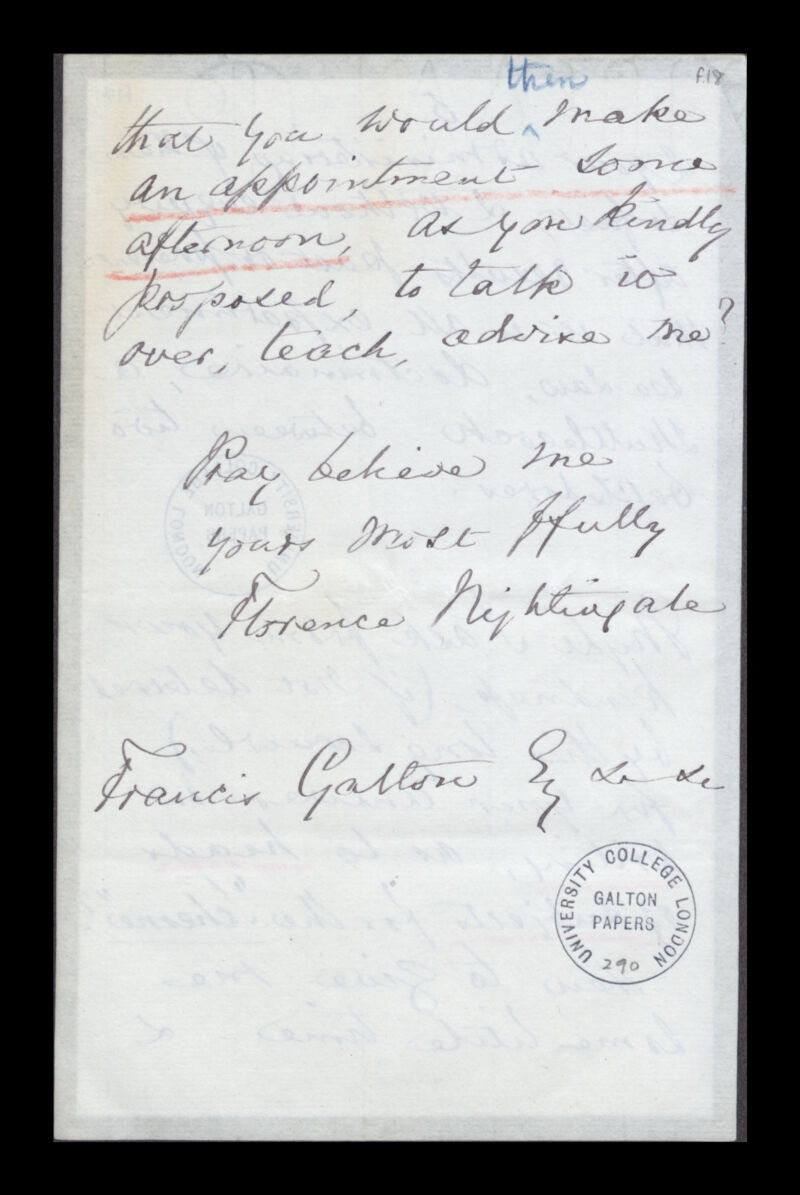 then
f.18
that you would ^ make
an appointment some
afternoon, as you kindly
proposed, to talk it
over, teach, advise me?
Pray believe me
yours most ffully
Florence Nightingale
Francis Galton Esq &c &c
UNIVERSITY COLLEGE LONDON
GALTON
PAPERS
290